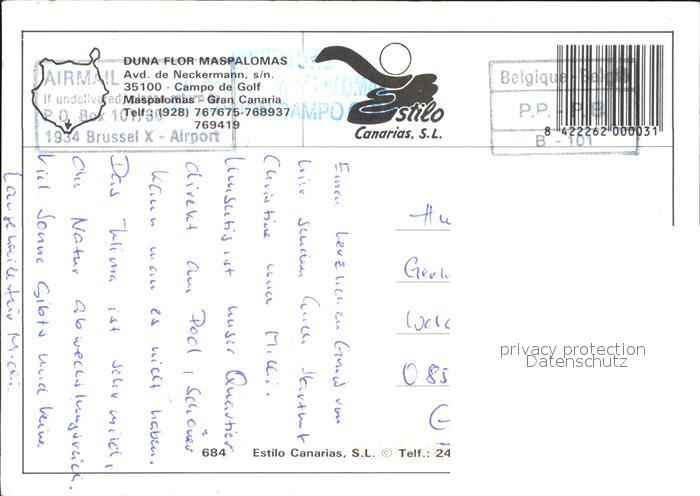 DUNA FLOR MASPALOMAS
Avd. de Neckermann, s/n.
35100 - Campo de Golf
Maspalomas - Gran Canaria
Telf.: (928) 767675-768937
769419
AIRMAIL
If undelivered
P.O. Box 10
1934 Brussel X - Airport
CAMPO
Estilo
Canarias, S.L.
Belgique - België
P.P. - P.B.
B - 101
8 422262 000031
Einen herzlichen Gruß von
hier senden Euch
Christine und Micki.
ist unser Quartier
direkt am Pool, schöner
kann man es nicht haben.
Das Klima ist sehr mild,
die Natur abwechslungsreich.
Viel Sonne gibts und keine
Langeweile für Micki.
085
privacy protection
Datenschutz
684 Estilo Canarias, S.L. © Telf.: 24